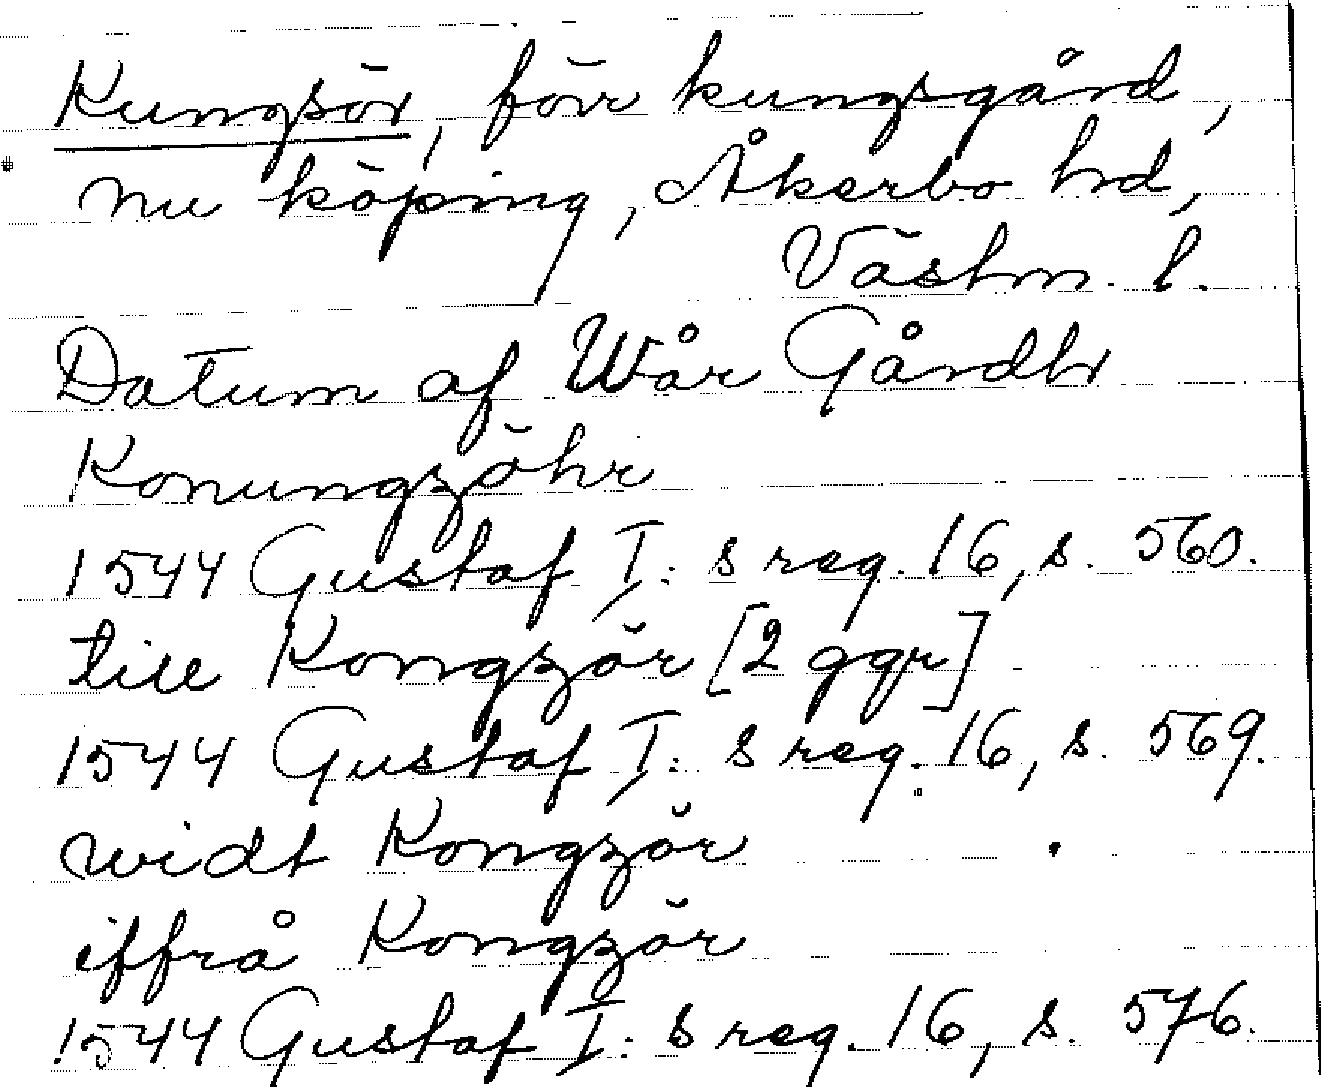 Kungsör, förr kungsgård,
nu köping, Åkerbo hd,
Västm. l.
Datum af Wår Gårdh
Konungzöhr
1544 Gustaf I:s reg. 16, s. 560.
till Kongzör [2 ggr]
1544 Gustaf I:s reg. 16, s. 569.
widt Kongzör
iffrå Kongzör
1544 Gustaf I:s reg. 16, s. 576.